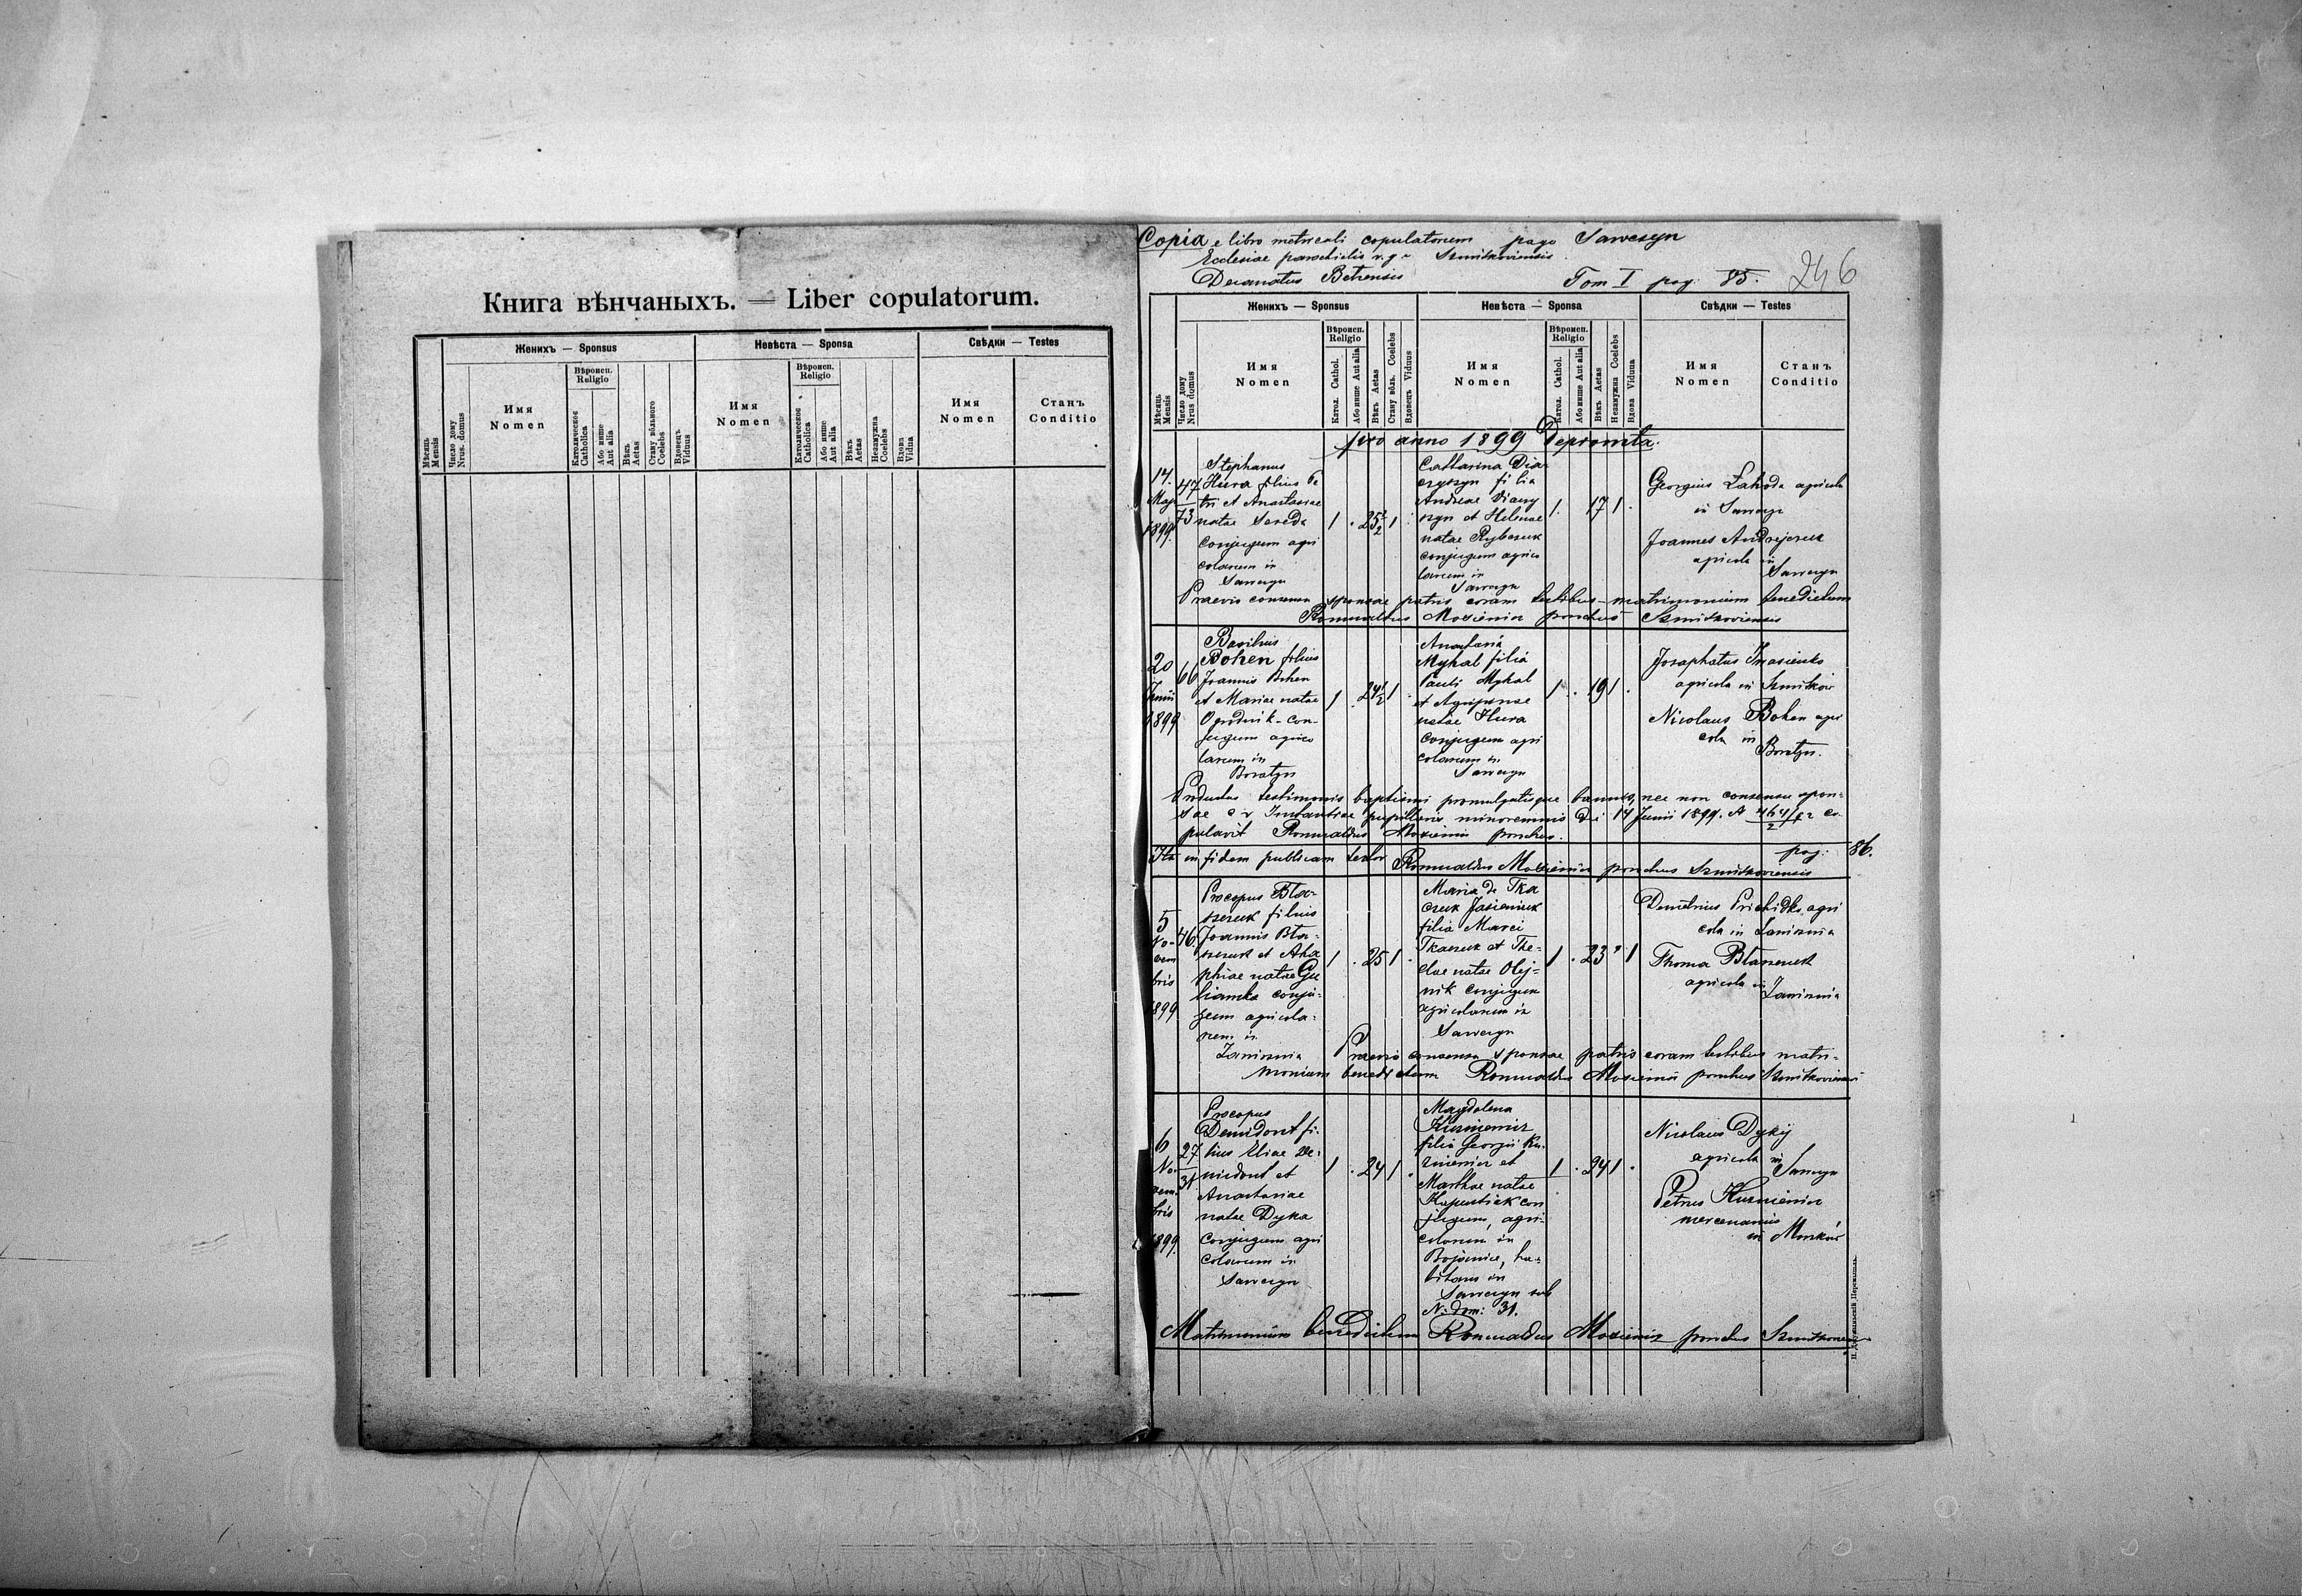 Книга вѣнчаныхъ. — Liber copulatorum.
Женихъ — Sponsus
Невѣста — Sponsa
Свѣдки — Testes
Мѣсяць Mensis
Число дому Nrus. domus
Имя
Nomen
Вѣроисп.
Religio
Католическое Catholica
Або инше Aut alia
Вѣкъ Aetas
Стану вôльного Coelebs
Вдовецъ Viduus
Имя
Nomen
Вѣроисп.
Religio
Католическое Catholica
Або инше Aut alia
Вѣкъ Aetas
Незамужна Coelebs
Вдова Vidua
Имя
Nomen
Станъ
Conditio
Copia e libro metricali copulatorum pago Sawczyn
Ecclesiae parochialis r. g. Szmitkoviensis
Decanatus Betzensis Tom I pag. 85. 246
Женихъ — Sponsus
Невѣста — Sponsa
Свѣдки — Testes
Мѣсяць Mensis
Число дому Nrus domus
Имя
Nomen
Вѣроисп.
Religio
Катол. Cathol.
Або инше Aut alia
Вѣкъ Aetas
Стану вôль. Coelebs
Вдовецъ Viduus
Имя
Nomen
Вѣроисп.
Religio
Катол. Cathol.
Або инше Aut alia
Вѣкъ Aetas
Незамужна Coelebs
Вдова Vidua
Имя
Nomen
Станъ
Conditio
pro anno 1899 Deprompta.
14.
Maji
1899.
47
73
Stephanus
Hura filius Pe
tri et Anastasiae
natae Sereda
conjugum agri
colarum in
Sawczyn
1 . 25 1/2 1 .
Catharina Dia
czyszyn filia
Andreae Diaczy
szyn et Helenae
natae Rybczuk
conjugum agrico
larum in
Sawczyn
1 . 17 1 .
Georgius Lahoda agricola
in Sawczyn
Joannes Andrejczuk
agricola in
Sawczyn
Praevio consensu sponsae patris coram testibus matrimonium benedictum
Romualdus Moxiewicz parochus Szmitkoviensis
20
Junii
1899
66
Basilius
Bohen filius
Joannis Bohen
et Mariae natae
Ogrodnik con-
jugum agrico
larum in
Boratyn
1 . 24 1/2 1 .
Anastasia
Mykal filia
Pauli Mykal
et Agripinae
natae Hura
conjugum agri
colarum in
Sawczyn
1 . 19 1 .
Josaphatus
agricola in Szmitków
Nicolaus Bohen agri
cola in
Boratyn.
Productis testimoniis baptismi promulgatisque bannis, nec non consensu spon-
sae c. r. Instantiae pupillaris minorennis Di 14 Junii 1899. co
pulavit Romualdus Moxiewicz parochus.
pag: 86.
Ita in fidem publicam testor Romualdus Moxiewicz parochus Szmitkoviensis
5
No-
vem
bris
1899
46.
Procopus Bła-
szczuk filius
Joannis Bła-
szczuk et Aha
phiae natae
conju-
gum agricola-
rum in
1 . 25 1 .
Maria de Tka
czuk Jasieniuk
filia Marci
Tkaczuk et The-
clae natae Olij-
nik conjugum
agricolarum in
Sawczyn
1 . 23 . 1
Demetrius agri
cola in
Thoma Błaszczuk
agricola in
Praevio consensu sponsae patris coram testibus matri-
monium benedictum Romualdus Moxiewicz parochus Szmitkoviensis
6
No-
vem-
bris
1899.
27
31.
Procopus
Demidont fi-
lius Eliae De-
midont et
Anastasiae
natae Dyka
conjugum agri
colarum in
Sawczyn
1 . 24 1 .
Magdalena
Kuzniewicz
filia Georgii Ku-
zniewicz et
Marthae natae
Kapustiak con
jugum, agri-
colarum in
Bojanice, ha-
bitans in
Sawczyn sub
N: dom: 31.
1 . 24 1 .
Nicolaus Dykij
agricola in
Sawczyn
Petrus Kuzniewicz
mercenarius
in
Matrimonium benedictum Romualdus Moxiewicz parochus